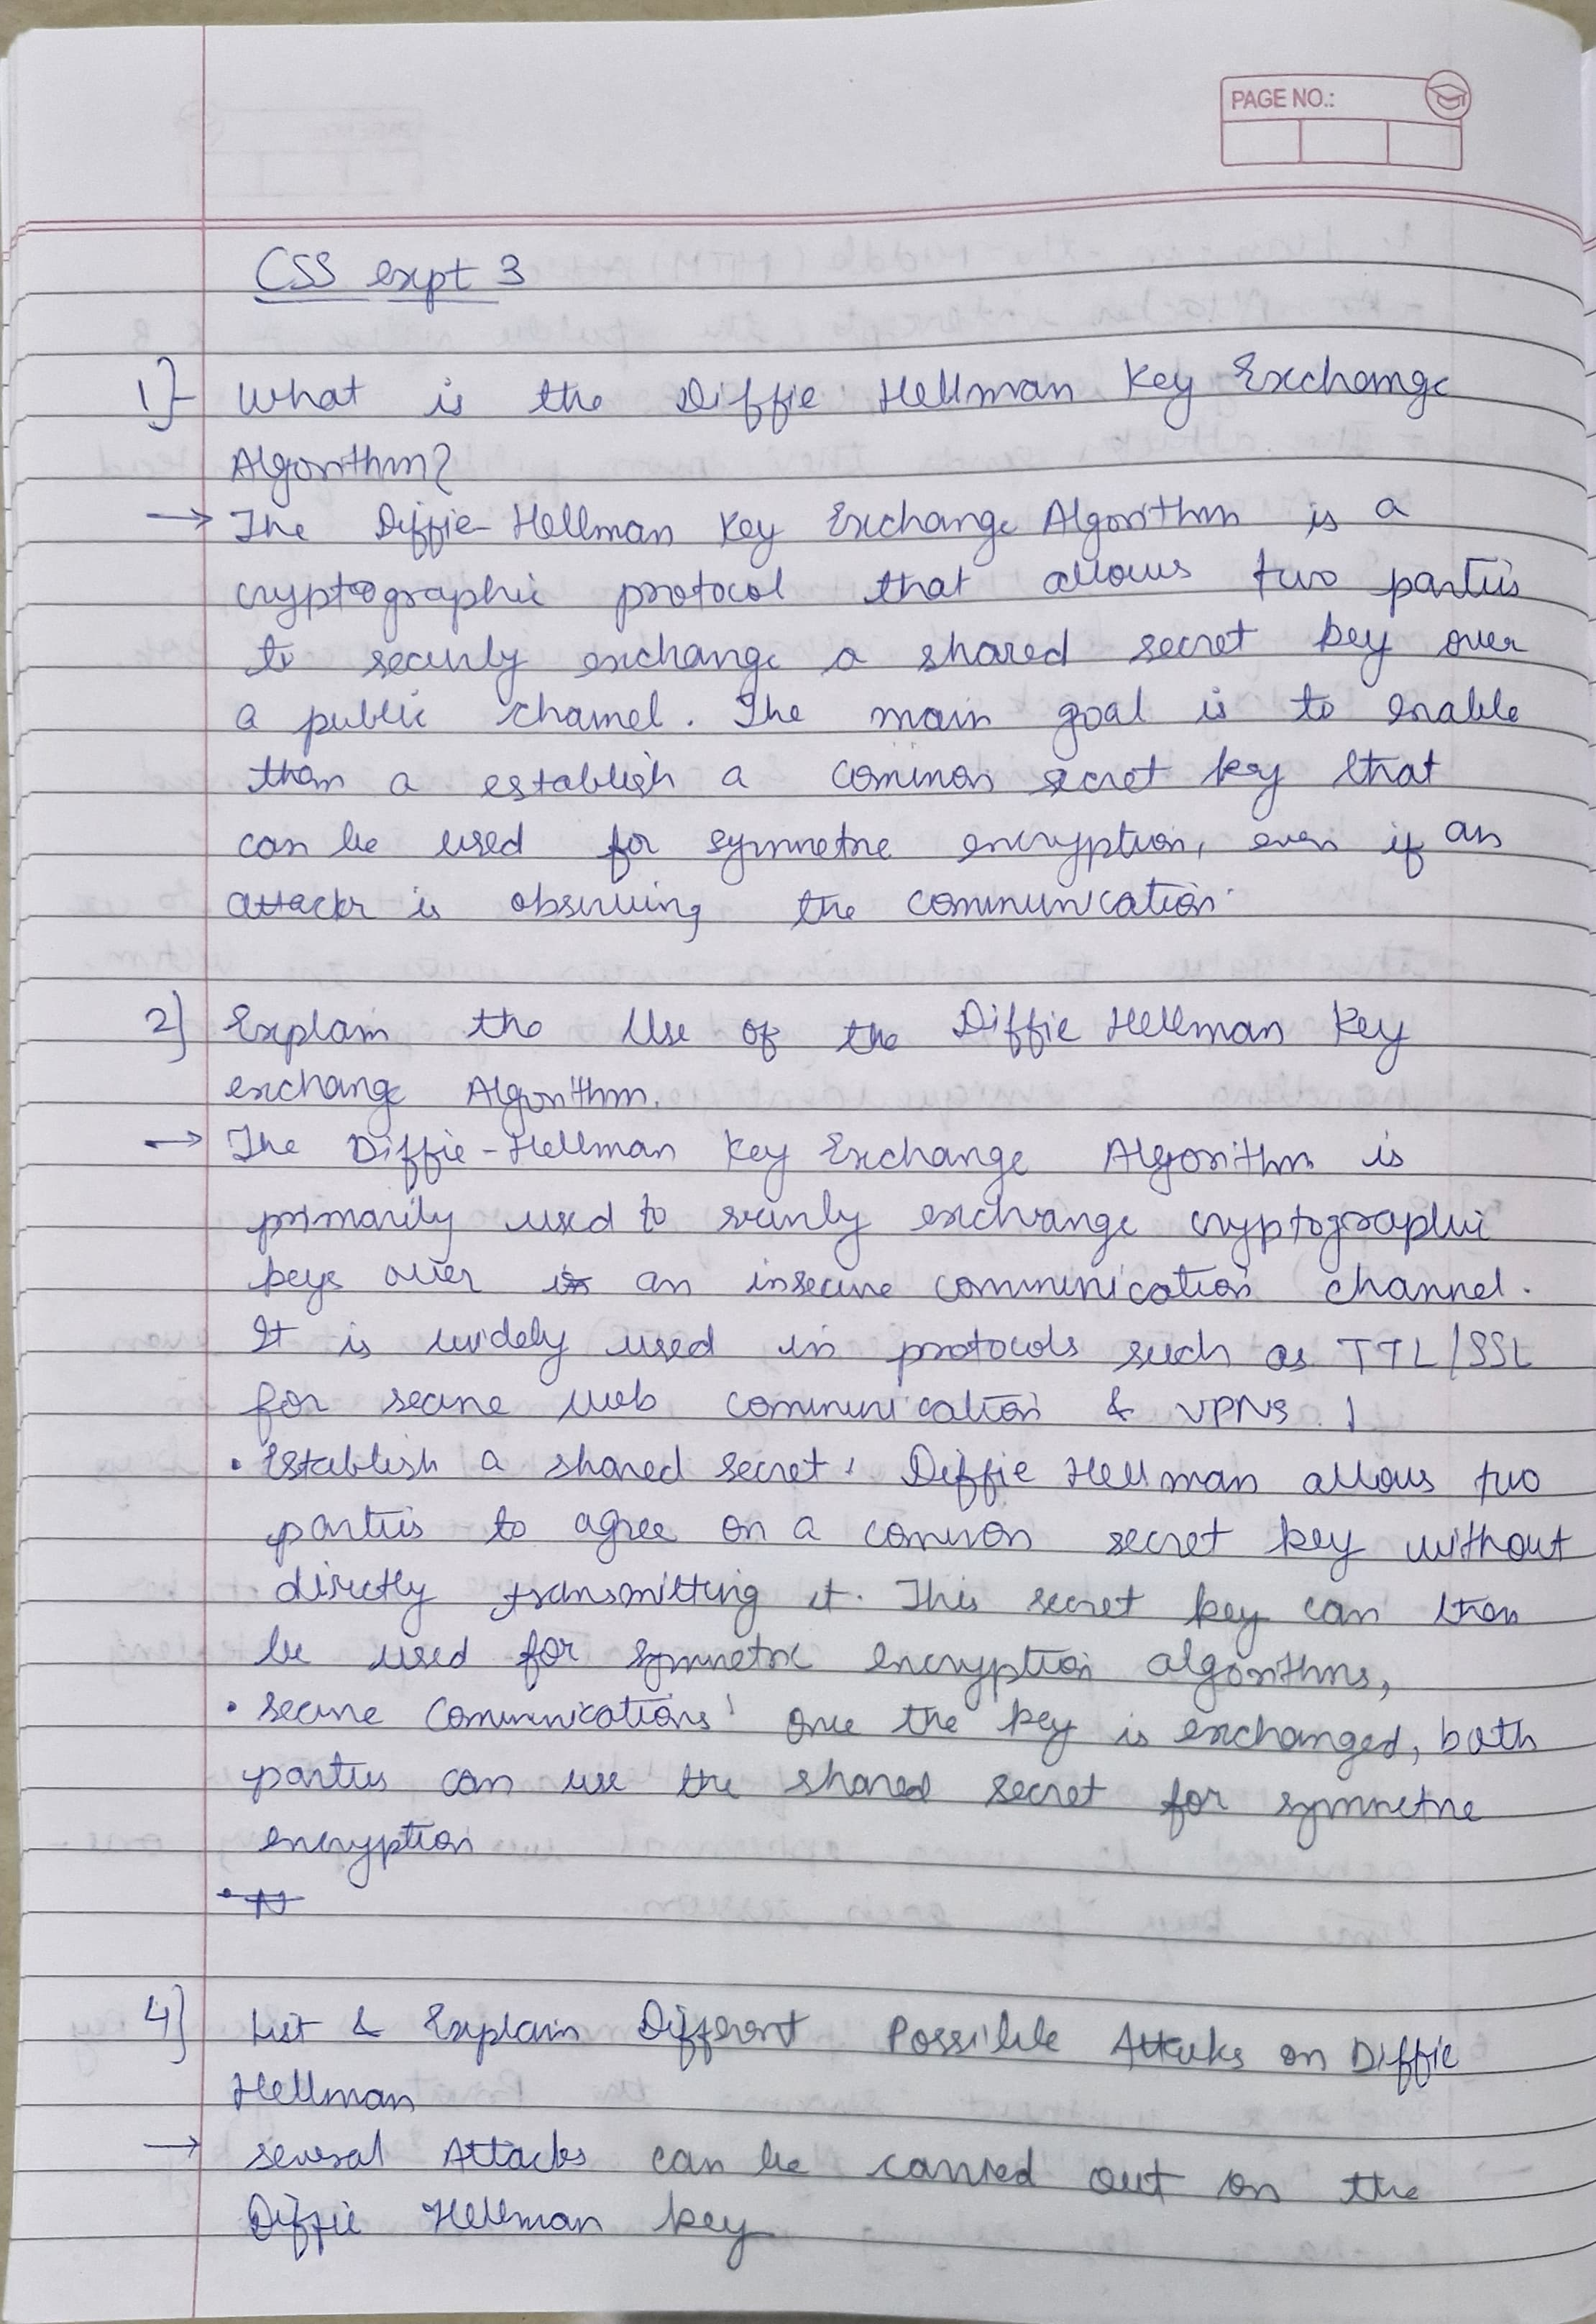 PAGE NO.:
CSS expt 3
1] What is the Diffie Hellman Key Exchange
Algorithm?
→ The Diffie-Hellman Key Exchange Algorithm is a
cryptographic protocol that allows two parties
to securly exchange a shared secret key over
a public channel. The main goal is to enable
them a establish a common secret key that
can be used for symmetric encryption, even if an
attackr is observing the communication.
2] Explain the Use of the Diffie Hellman Key
exchange Algorithm.
→ The Diffie-Hellman Key Exchange Algorithm is
primarily used to securly exchange cryptographic
keys over an insecure communication channel.
It is widely used in protocols such as TTL/SSL
for secure web communication & VPNs.
• Establish a shared secret: Diffie Hellman allows two
parties to agree on a common secret key without
directly transmitting it. This secret key can then
be used for symmetric encryption algorithms,
• secure Communications: once the key is exchanged, both
parties can use the shared secret for symmetric
encryption
• N
4] List & Explain Different Possible Attacks on Diffie
Hellman
→ several Attacks can be carried out on the
Diffie Hellman key